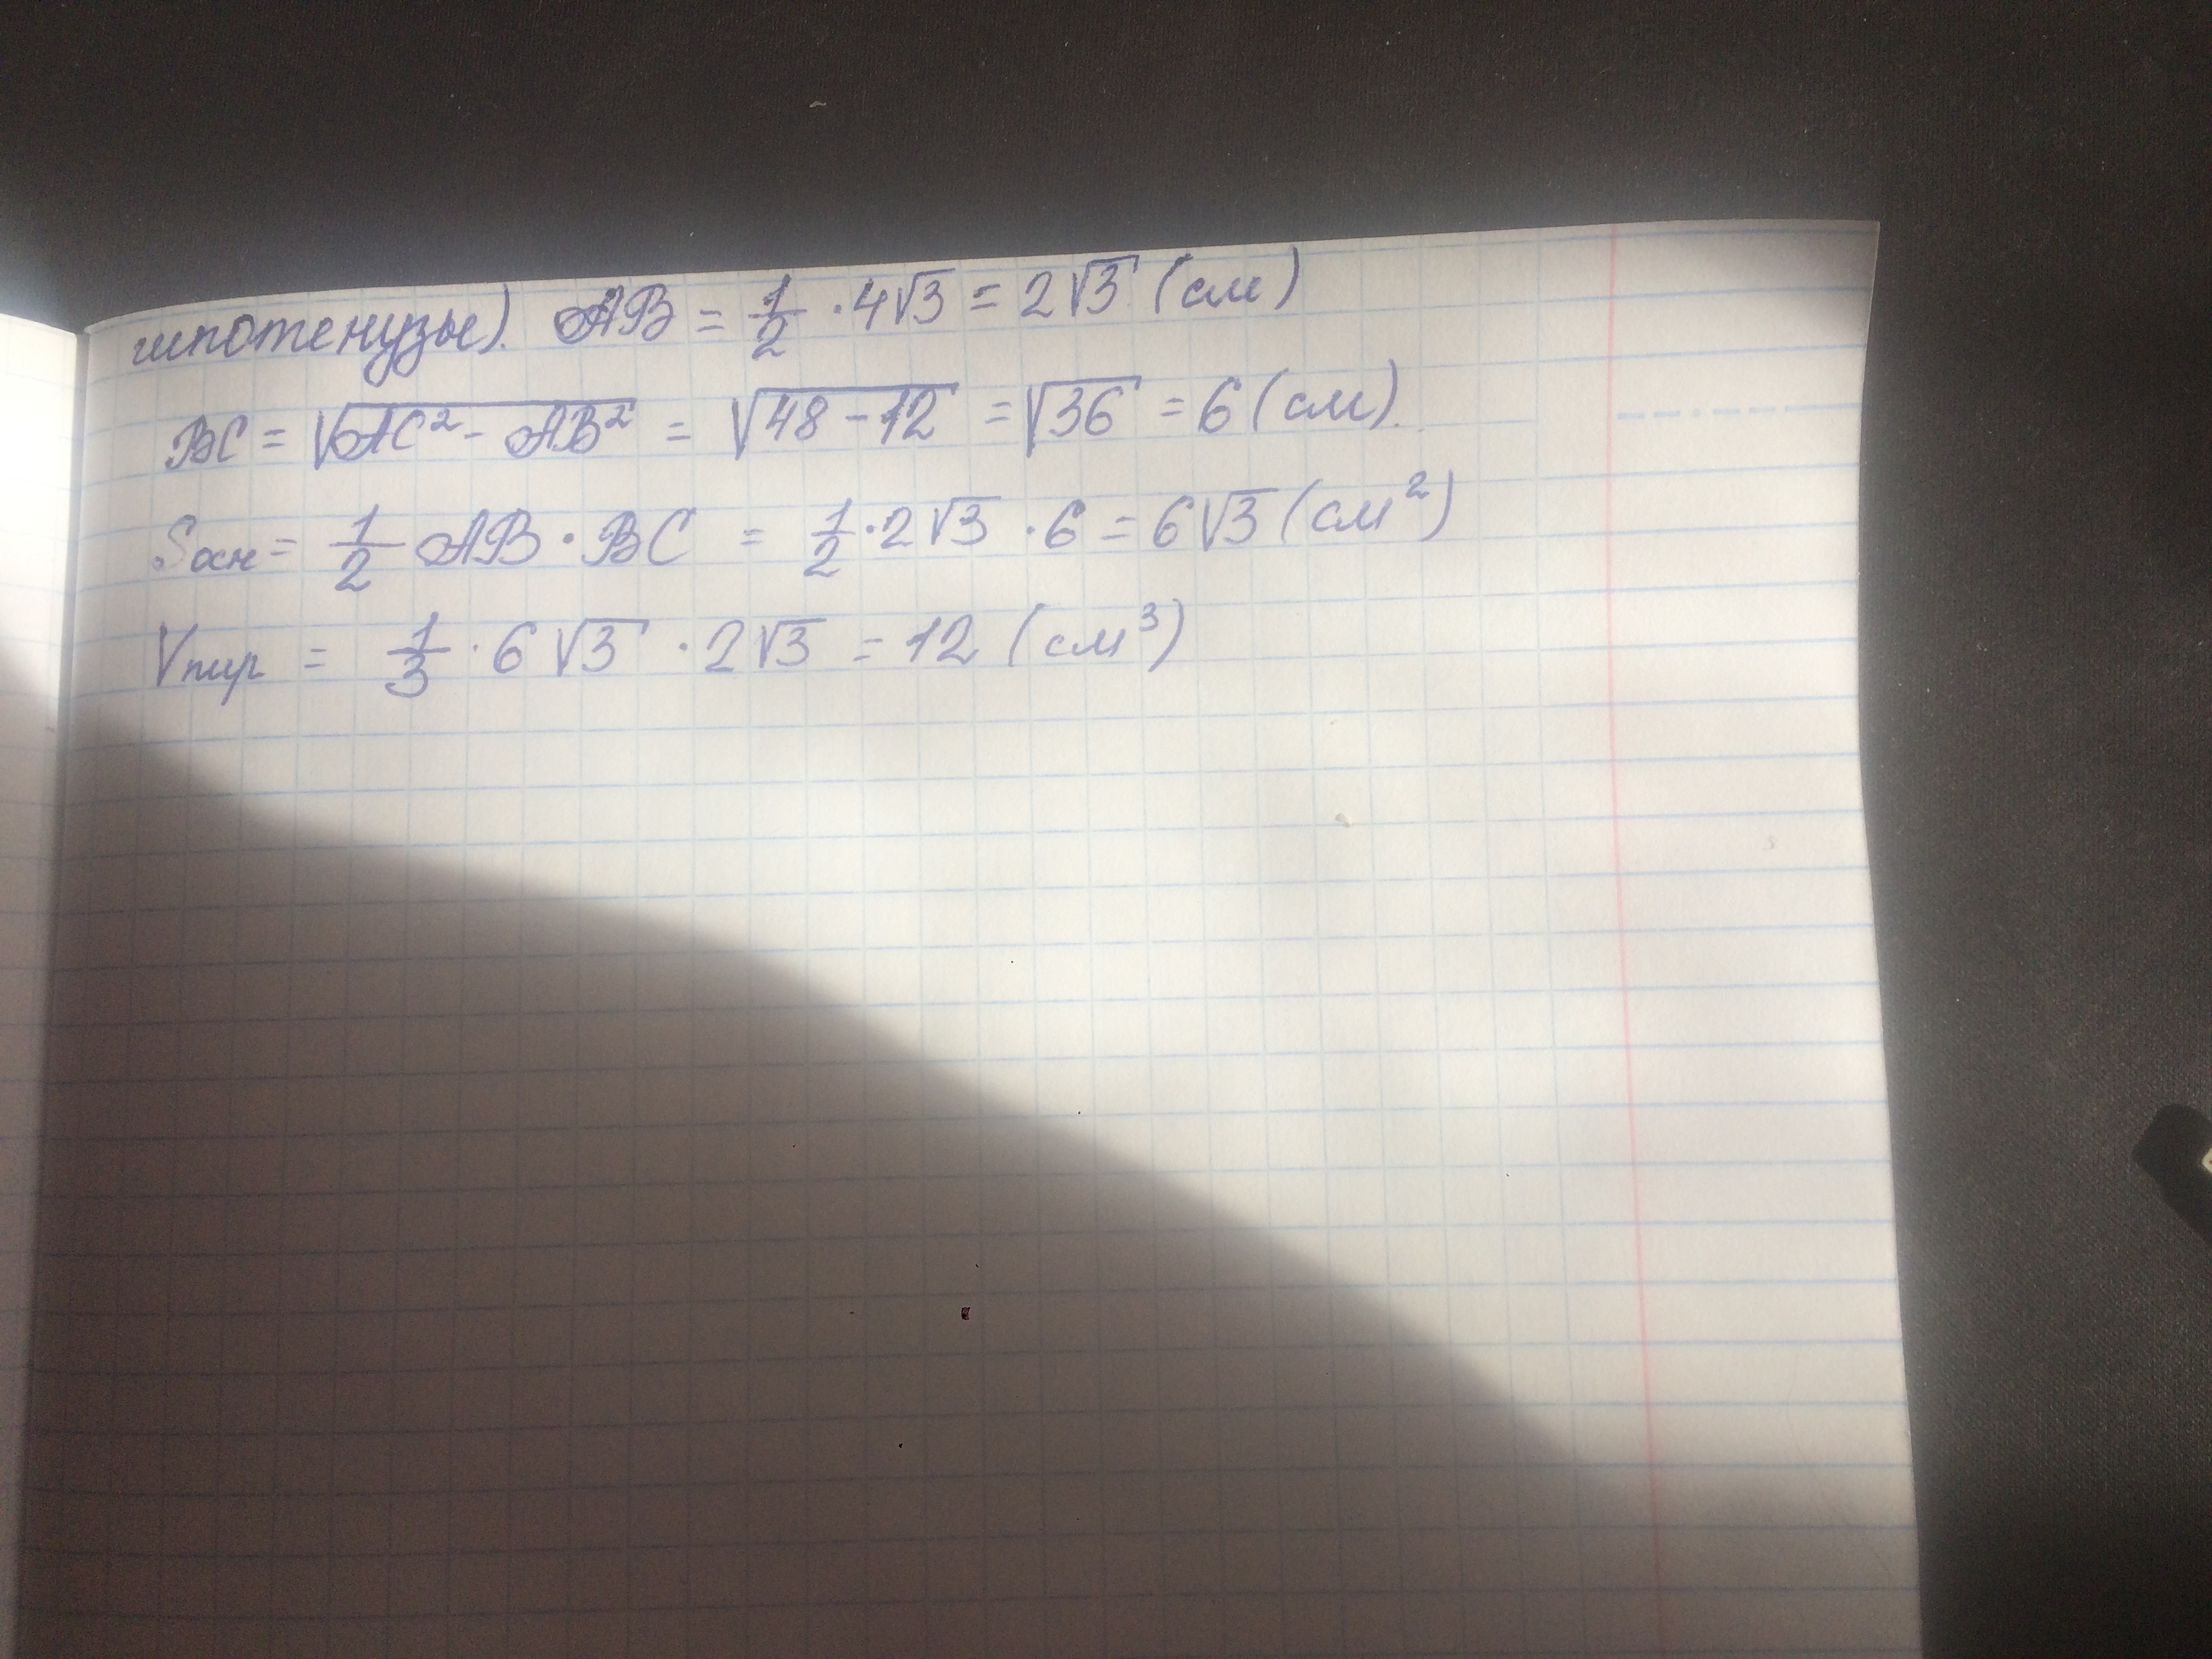 гипотенузы). AB = 1/2 · 4√3 = 2√3 (см)
BC = √(AC² - AB²) = √(48 - 12) = √36 = 6 (см).
Sосн = 1/2 AB · BC = 1/2 · 2√3 · 6 = 6√3 (см²)
Vпир = 1/3 · 6√3 · 2√3 = 12 (см³)